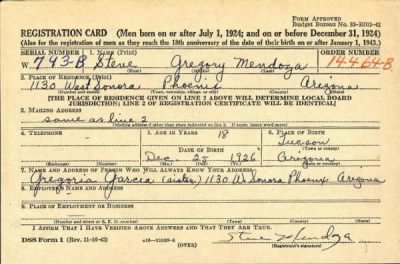 FORM APPROVED
Budget Bureau No. 33-R012-42
REGISTRATION CARD (Men born on or after July 1, 1924; and on or before December 31, 1924)
(Also for the registration of men as they reach the 18th anniversary of the date of their birth on or after January 1, 1943.)
SERIAL NUMBER 1. NAME (Print) ORDER NUMBER
W. 743-B Steve Gregory Mendoza 14464-B
(First) (Middle) (Last)
2. PLACE OF RESIDENCE (Print)
1130 West Sonora Phoenix Arizona
(Number and street) (Town, township, village, or city) (County) (State)
[THE PLACE OF RESIDENCE GIVEN ON LINE 2 ABOVE WILL DETERMINE LOCAL BOARD
JURISDICTION; LINE 2 OF REGISTRATION CERTIFICATE WILL BE IDENTICAL]
3. MAILING ADDRESS
same as line 2
[Mailing address if other than place indicated on line 2. If same, insert word same]
4. TELEPHONE 5. AGE IN YEARS 6. PLACE OF BIRTH
18 Tucson
DATE OF BIRTH (Town or county)
Dec. 28 1926 Arizona
(Exchange) (Number) (Mo.) (Day) (Yr.) (State or country)
7. NAME AND ADDRESS OF PERSON WHO WILL ALWAYS KNOW YOUR ADDRESS
Gregoria Garcia (sister) 1130 W. Sonora Phoenix Arizona
8. EMPLOYER'S NAME AND ADDRESS
9. PLACE OF EMPLOYMENT OR BUSINESS
(Number and street or R. F. D. number) (Town) (County) (State)
I AFFIRM THAT I HAVE VERIFIED ABOVE ANSWERS AND THAT THEY ARE TRUE.
DSS Form 1 (Rev. 11-16-42) (OVER) Steve Mendoza
(Registrant's signature)